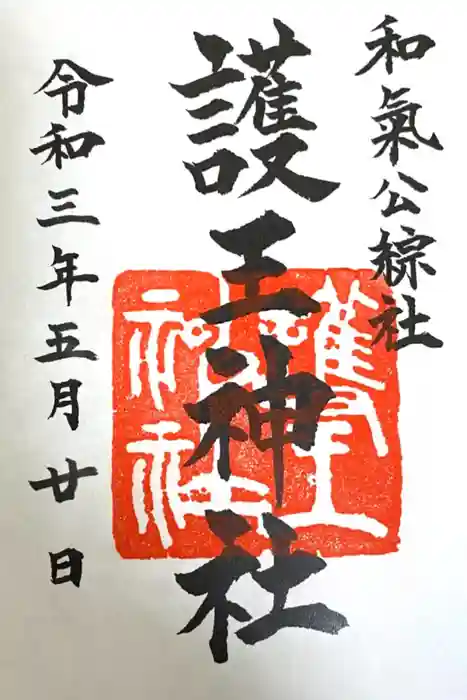 和氣公綜社
護王神社
令和三年五月廿日
護王
神社